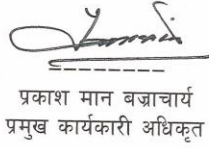 प्रकाश मान बज्राचार्य
प्रमुख कार्यकारी अधिकृत